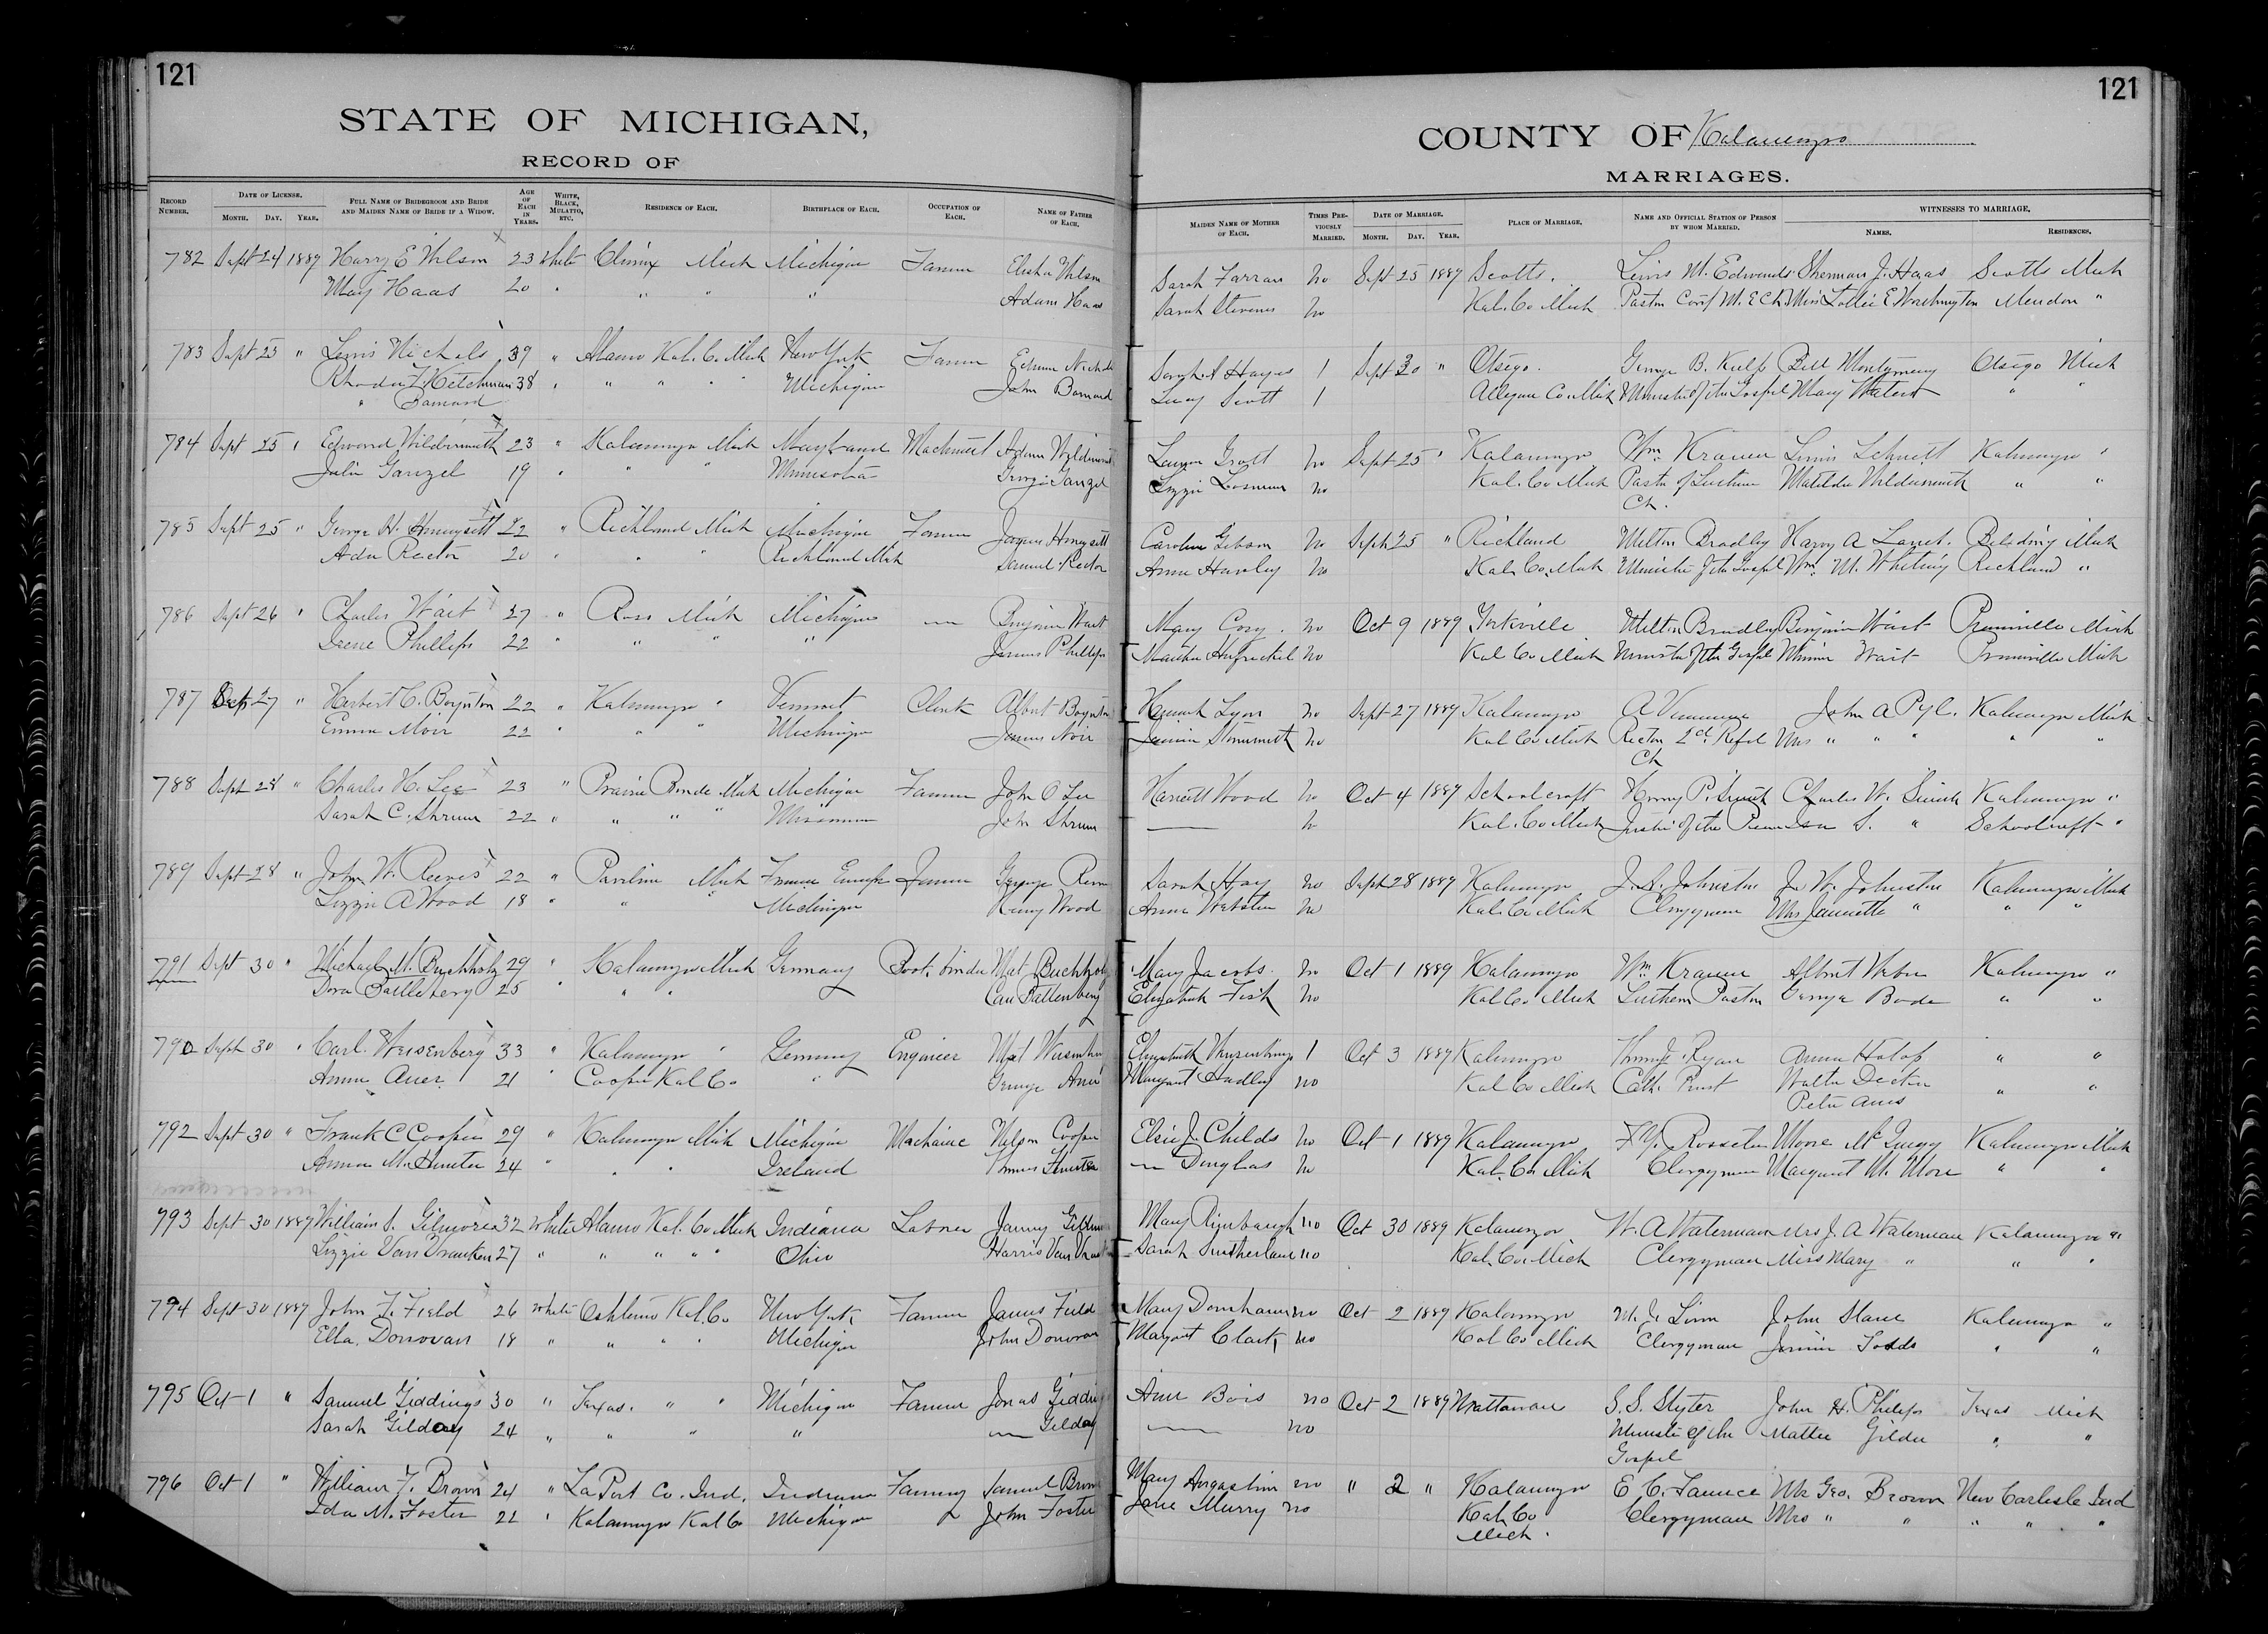 121
STATE OF MICHIGAN,
RECORD OF
121
COUNTY OF Kalamazoo
MARRIAGES.
RECORD NUMBER. DATE OF LICENSE. MONTH. DAY. YEAR. FULL NAME OF BRIDEGROOM AND BRIDE AND MAIDEN NAME OF BRIDE IF A WIDOW. AGE OF EACH IN YEARS. WHITE, BLACK, MULATTO, ETC. RESIDENCE OF EACH. BIRTHPLACE OF EACH. OCCUPATION OF EACH. NAME OF FATHER OF EACH.
MAIDEN NAME OF MOTHER OF EACH. TIMES PREVIOUSLY MARRIED. DATE OF MARRIAGE. MONTH. DAY. YEAR. PLACE OF MARRIAGE. NAME AND OFFICIAL STATION OF PERSON BY WHOM MARRIED. WITNESSES TO MARRIAGE. NAMES. RESIDENCES.
782 Sept 24 1889 Harry E Wilson 23 White Climax Mich Michigan Farmer Elisha Wilson Sarah Farran No Sept 25 1889 Scotts. Lewis M. Edmonds Sherman J. Haas Scotts Mich
May Haas 20 " " " " Adam Haas Sarah Stevens No Kal. Co Mich Pastor Cong M. E Ch Miss Lottie E Worthington Mendon "
783 Sept 25 " Lewis Nichols 39 " Alamo Kal. Co. Mich New York Farmer Nichols Sarah A Hayes 1 Sept 30 " Otsego. George B. Kulp Bell Montgomery Otsego Mich
Rhoda Z. Ketchum 38 " " " " Michigan John Barnard Lucy Scott 1 Allegan Co Mich Minister of the Gospel Mary Waters " "
" Barnard
784 Sept 25 " Edward Wildermuth 23 " Kalamazoo Mich Maryland Machinist Adam Wildermuth No Sept 25 " Kalamazoo Wm Kramer Lewis Schuett Kalamazoo "
Julia Ganzel 19 " " " Minnesota George Ganzel Lizzie No Kal. Co Mich Pastor of Lutheran Matilda Wildermuth " "
Ch.
785 Sept 25 " George H. Honeysett 22 " Richland Mich Michigan Farmer James Honeysett Caroline Gibson No Sept 25 " Richland Milton Bradley Harry A Lanct. Belding Mich
Ada Rector 20 " " " Richland Mich Samuel Rector Anna Hawley No Kal. Co. Mich Minister of the Gospel Wm. M. Whiting Richland "
786 Sept 26 " Charles Wait 27 " Ross Mich Michigan — Benjamin Wait Mary Cory. No Oct 9 1889 Yorkville Milton Bradley Benjamin Wait Prairieville Mich
Irene Phillips 22 " " " " James Phillips Martha No Kal Co Mich Minister of the Gospel Minnie Wait Prairieville Mich
787 Sept 27 " Herbert C. Boynton 22 " Kalamazoo " Vermont Clerk Albert Boynton Hannah Lyon No Sept 27 1889 Kalamazoo John A Pyl. Kalamazoo Mich
Emma Moir 22 " " " Michigan James Moir No Kal Co Mich 2d Refd Mrs " " " " "
Ch
788 Sept 28 " Charles H. Lee 23 " Prairie Ronde Mich Michigan Farmer John O Lee Harriett Wood No Oct 4 1889 Schoolcraft Henry P. Smith Charles W. Smith Kalamazoo "
Sarah C. Shrum 22 " " " " John Shrum — No Kal. Co Mich Justice of the Peace S. " Schoolcraft "
789 Sept 28 " John W. Reeves 22 " Pavilion Mich France Europe Farmer George Sarah Hay No Sept 28 1889 Kalamazoo J. S. Johnston J. W. Johnston Kalamazoo Mich
Lizzie A Wood 18 " " Michigan Henry Wood Anna Webster No Kal. Co Mich Clergyman Mrs Jannette " " "
791 Sept 30 " Michael M. Buchholz 29 " Kalamazoo Mich Germany Book binder Mat Buchholz Mary Jacobs. No Oct 1 1889 Kalamazoo Wm Kramer Albert Kalamazoo "
Dora Battleberg 25 " " " Carl Elizabeth Fish No Kal Co Mich Lutheran Pastor George Bode " "
790 Sept 30 " Carl. Weisenberg 33 " Kalamazoo " Germany Engineer Mat Elizabeth 1 Oct 3 1889 Kalamazoo Ryan Anna " "
Anna Auer 21 " Cooper Kal Co " George Auer Margaret Hadley no Kal Co Mich Cath. Priest Walter " "
Peter Aues
792 Sept 30 " Frank C Cooper 29 " Kalamazoo Mich Michigan Machine Nelson Cooper Elsie J. Childs No Oct 1 1889 Kalamazoo Kalamazoo Mich
Anna M. Hunter 24 " " " Ireland Hunter — Douglas No Kal. Co. Mich Clergyman Margaret M. More " "
793 Sept 30 1889 William S. Gilmore 32 White Alamo Kal. Co Mich Indiana Laborer no Oct 30 1889 Kalamazoo W. A Waterman Mrs J. A Waterman Kalamazoo "
Lizzie Van Vranken 27 " " " " " Ohio Harris Van Sarah Sutherland no Kal. Co. Mich Clergyman Miss Mary " " "
794 Sept 30 1889 John F. Field 26 White Oshtemo Kal. Co New York, Farmer James Field Mary no Oct 2 1889 Kalamazoo John Kalamazoo "
Ella. Donovan 18 " " " " Michigan John Donovan Margaret Clark no Kal Co Mich Clergyman Jennie Todds " "
795 Oct 1 " Samuel Giddings 30 " Texas. " " Michigan Farmer Jonas Giddings Ann Bois no Oct 2 1889 Mattawan S. S. Slyter John H. Philips Texas Mich
Sarah Gilday 24 " " " " — Gilday — no Minister of the Mattie " "
Gospel
796 Oct 1 " William F. Brown 24 " La Port Co. Ind. Indiana Farming Samuel Brown Mary no " 2 " Kalamazoo E C. Faunce Mr Geo. Brown New Carlisle Ind
Ida M. Foster 22 " Kalamazoo Kal Co Michigan John Foster Jane Murry no Kal. Co Clergyman Mrs " " " " "
Mich.